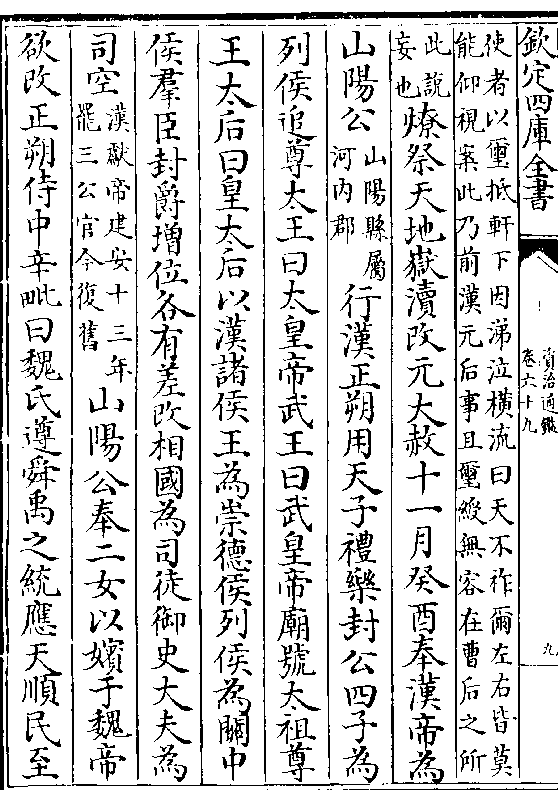 欽定四庫全書
資治通鑑
卷六十九
九
使者以璽抵軒下因涕泣橫流曰天不祚爾左右皆莫
能仰視案此乃前漢元后事且璽綬無容在曹后之所
此說
妄也
燎祭天地嶽瀆改元大赦十一月癸酉奉漢帝為
山陽公山陽縣屬
河內郡
行漢正朔用天子禮樂封公四子為
列侯追尊太王曰太皇帝武王曰武皇帝廟號太祖尊
王太后曰皇太后以漢諸侯王為崇德侯列侯為關中
侯羣臣封爵增位各有差改相國為司徒御史大夫為
司空漢獻帝建安十三年
罷三公官今復舊
山陽公奉二女以嬪于魏帝
欲改正朔侍中辛毗曰魏氏遵舜禹之統應天順民至